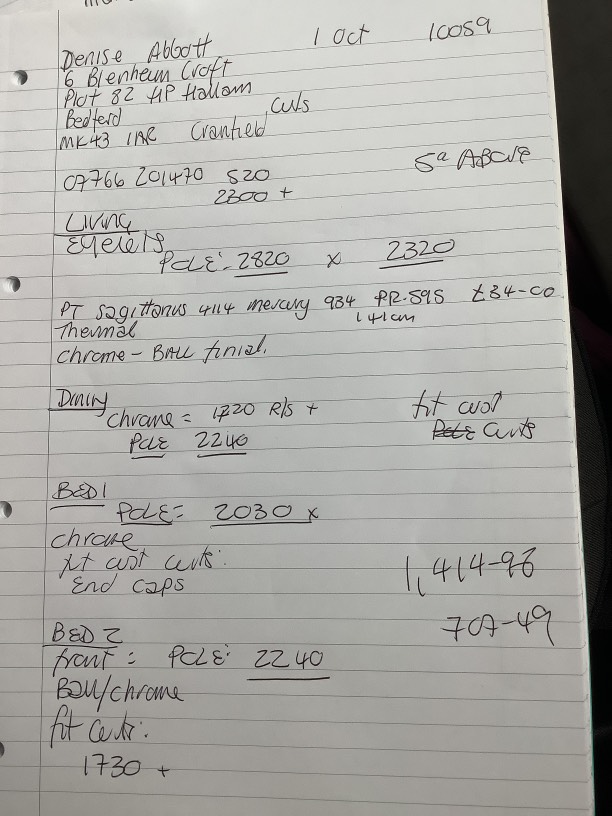 Denise Abbott 1 Oct 10059
6 Blenheim Croft
Plot 82 HP Hallam
Bedford Curts
MK43 1AR Cranfield
5a ABOVE
07766 201470 520
2300 +
Living
Eyelets
POLE: 2820 x 2320
PT Sagittarius 4114 mercury 934 PR-595 £34-00
141cm
Thermal
Chrome - BALL finial.
Dining
chrome = 1720 R/S + fit cust
POLE 2240 POLE Curts
BED 1
POLE = 2030 x
chrome
fit cust curts:
End caps
1,414-98
707-49
BED 2
front = POLE: 2240
Ball/chrome
fit curts:
1730 +